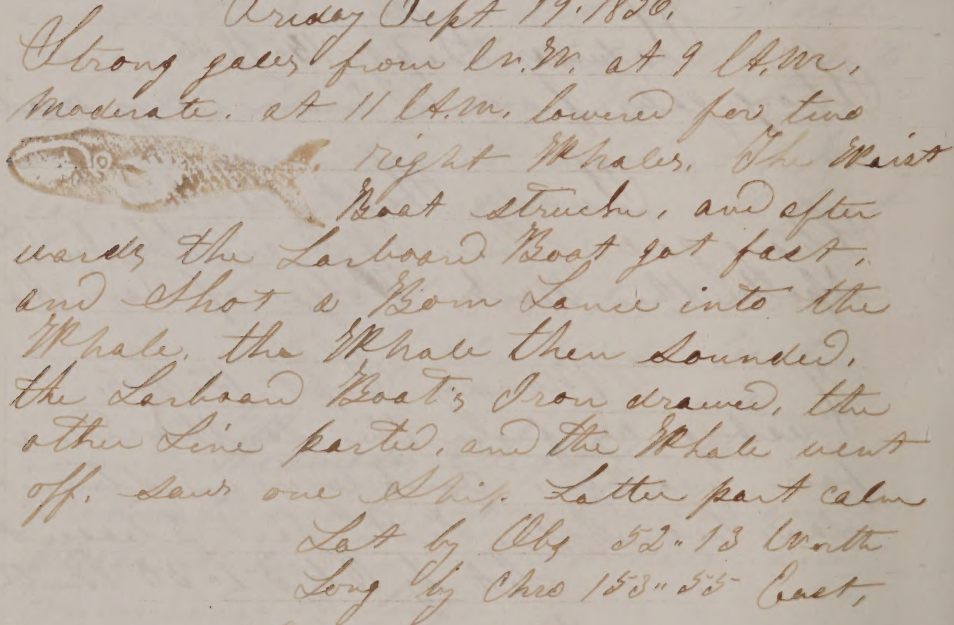 Friday Sept 19. 1856.
Strong gales from N.W. at 9 A.M.
Moderate. at 11 A.M. lowered for two
right Whales. The Waist
Boat strucke, and after
wards the Larboard Boat got fast,
and Shot a Bom Lance into the
Whale. the Whale then Sounded.
the Larboard Boat's Iron drawed, the
other Line parted, and the Whale went
off. saw one Ship. Latter part calm
Lat by Obs 52" 13 North
Long by Chro 153" 55 East,